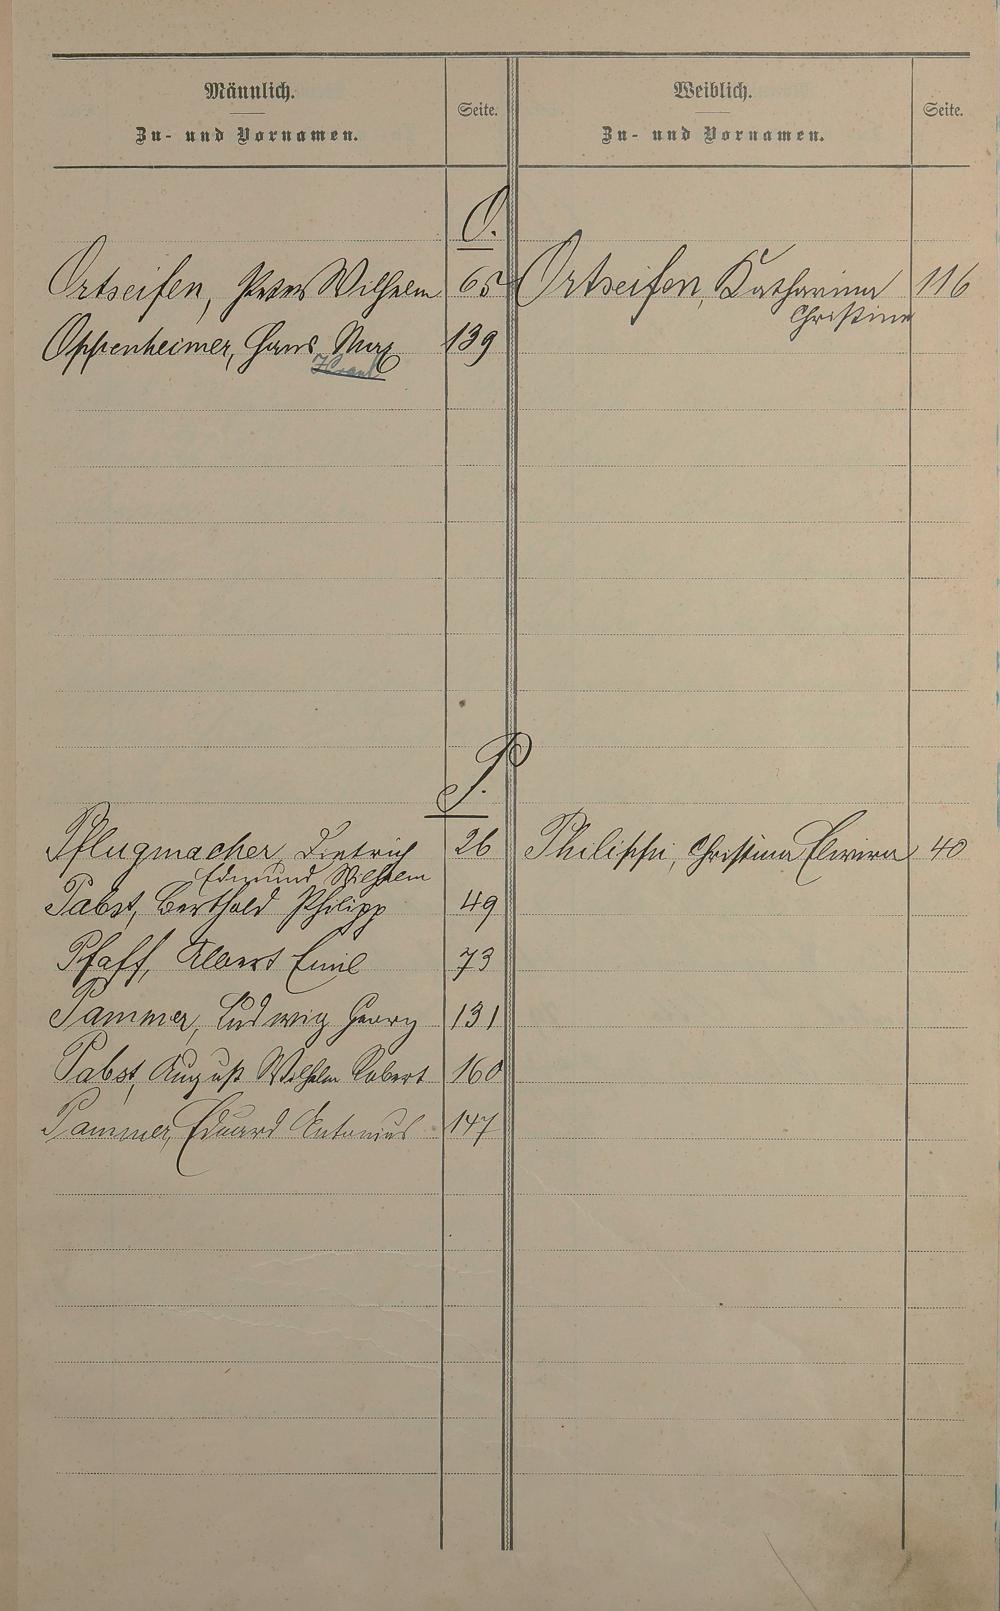 Männlich.
Zu- und Vornamen.
Seite.
Weiblich.
Zu- und Vornamen.
Seite.
O.
Ortseifen, Peter Wilhelm 65
Ortseifen, Katharina 116
Christine
Oppenheimer, Hans Max 139
P.
Pflugmacher, Dietrich 26
Edmund Wilhelm
Philippi, Christina Elwira 40
Pabst, Berthold Philipp 49
Pfaff, Albert Emil 73
Pammer, Ludwig Georg 131
Pabst, August Wilhelm Robert 160
Pammer, Eduard Antonius 147